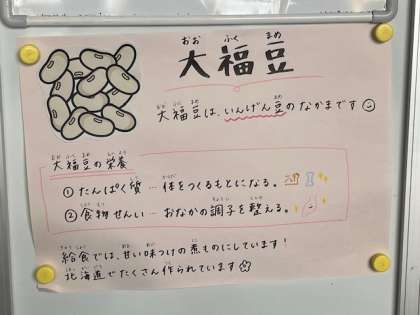 大福豆
大福豆は、いんげん豆のなかまです
大福豆の栄養
①たんぱく質…体をつくるもとになる。
②食物せんい…おなかの調子を整える。
給食では、甘い味つけの煮ものにしています！
北海道でたくさん作られています